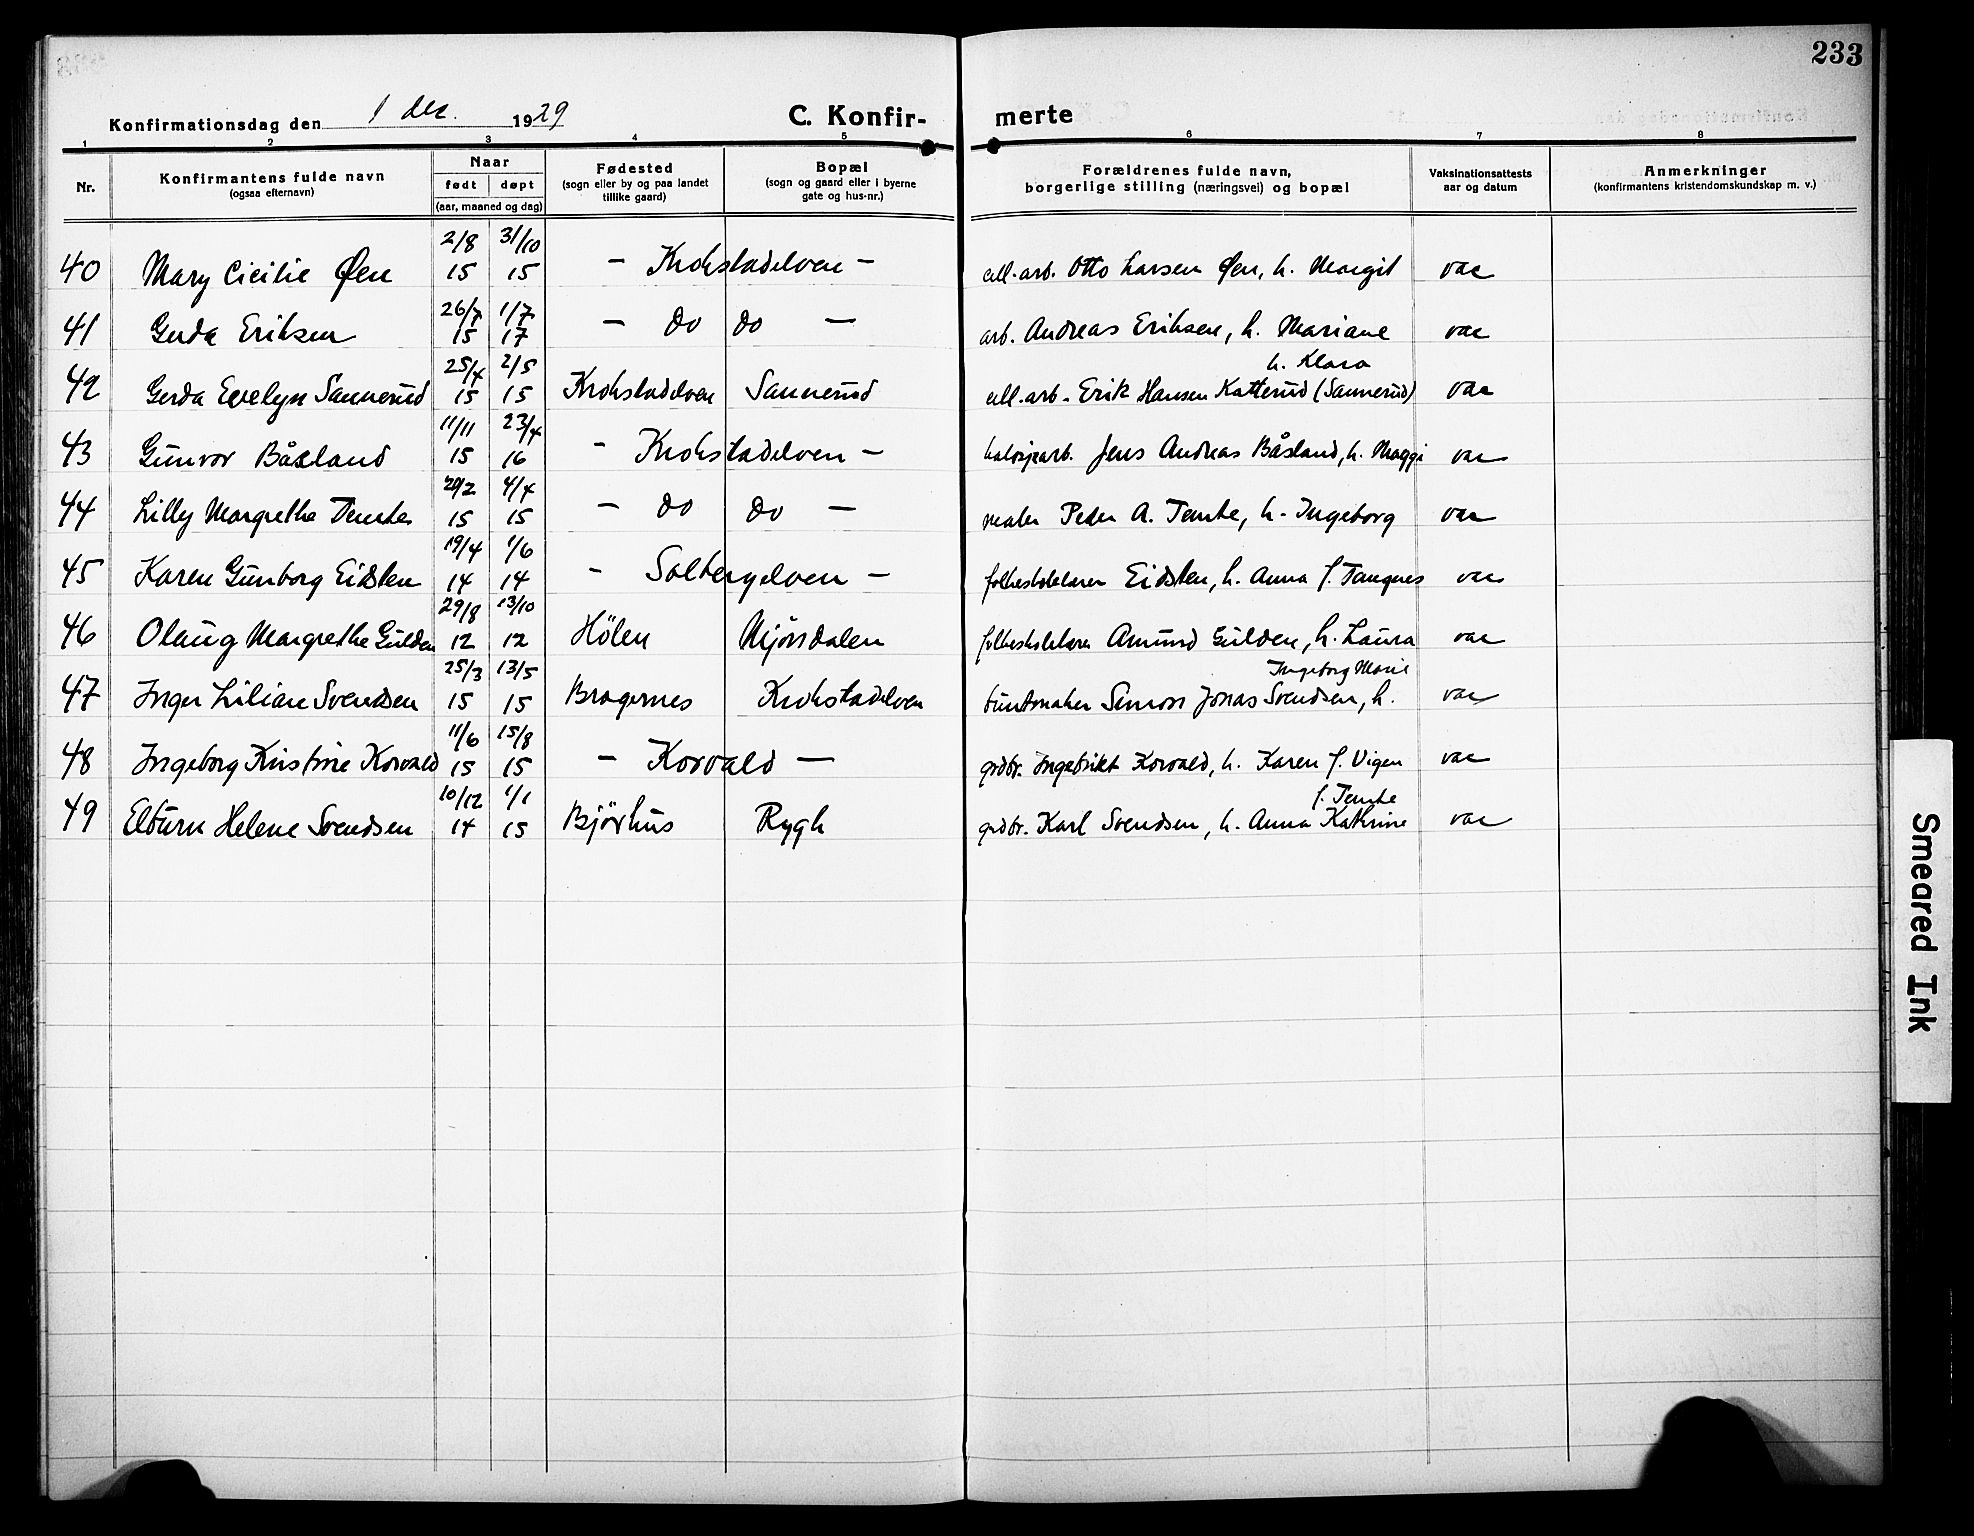 233
Konfirmationsdag den 1 dec. 1929 C. Konfirmerte
1 2 3 4 5 6 7 8
Nr. Konfirmantens fulde navn (ogsaa efternavn) Naar født døpt (aar, maaned og dag) Fødested (sogn eller by og paa landet tillike gaard) Bopæl (sogn og gaard eller i byerne gate og hus-nr.) Forældrenes fulde navn, borgerlige stilling (næringsvei) og bopæl Vaksinationsattests aar og datum Anmerkninger (konfirmantens kristendomskundskap m. v.)
40 Mary Cicilie Øen 2/8 15 31/10 15 – Krokstadelven – cell.arb. Otto Larsen Øen, h. Margit vac
41 Gerda Eriksen 26/7 15 1/7 17 – do do – arb. Andreas Eriksen, h. Mariane vac
42 Gerda Evelyn Sannerud 25/4 15 2/5 15 Krokstadelven Sannerud cell.arb. Erik Hansen Katterud (Sannerud) h. Klara vac
43 Gunvor Båsland 11/11 15 23/4 16 – Krokstadelven – kalosjearb. Jens Andreas Båsland, h. Maggi vac
44 Lilly Margrethe Temte 20/2 15 4/4 15 – do do – maler Peder A. Temte, h. Ingeborg vac
45 Karen Gunborg Eidsten 19/4 14 1/6 14 – Solbergelven – folkeskolelærer Eidsten, h. Anna f. Tangnes vac
46 Olaug Margrethe Gulden 29/8 12 13/10 12 Hølen Mjøndalen folkeskolelærer Amund Gulden, h. Laura vac
47 Inger Lilian Svendsen 25/3 15 13/5 15 Bragernes Krokstadelven buntmaker Simon Jonas Svendsen, h. Ingeborg Marie vac
48 Ingeborg Kristine Korvald 11/6 15 15/8 15 – Korvald – grdbr. Ingebrikt Korvald, h. Karen f. Vigen vac
49 Elbürn Helene Svendsen 10/12 14 1/1 15 Bjørhus Rygh grdbr. Karl Svendsen, h. Anna Kathrine f. Temte vac
Smeared Ink